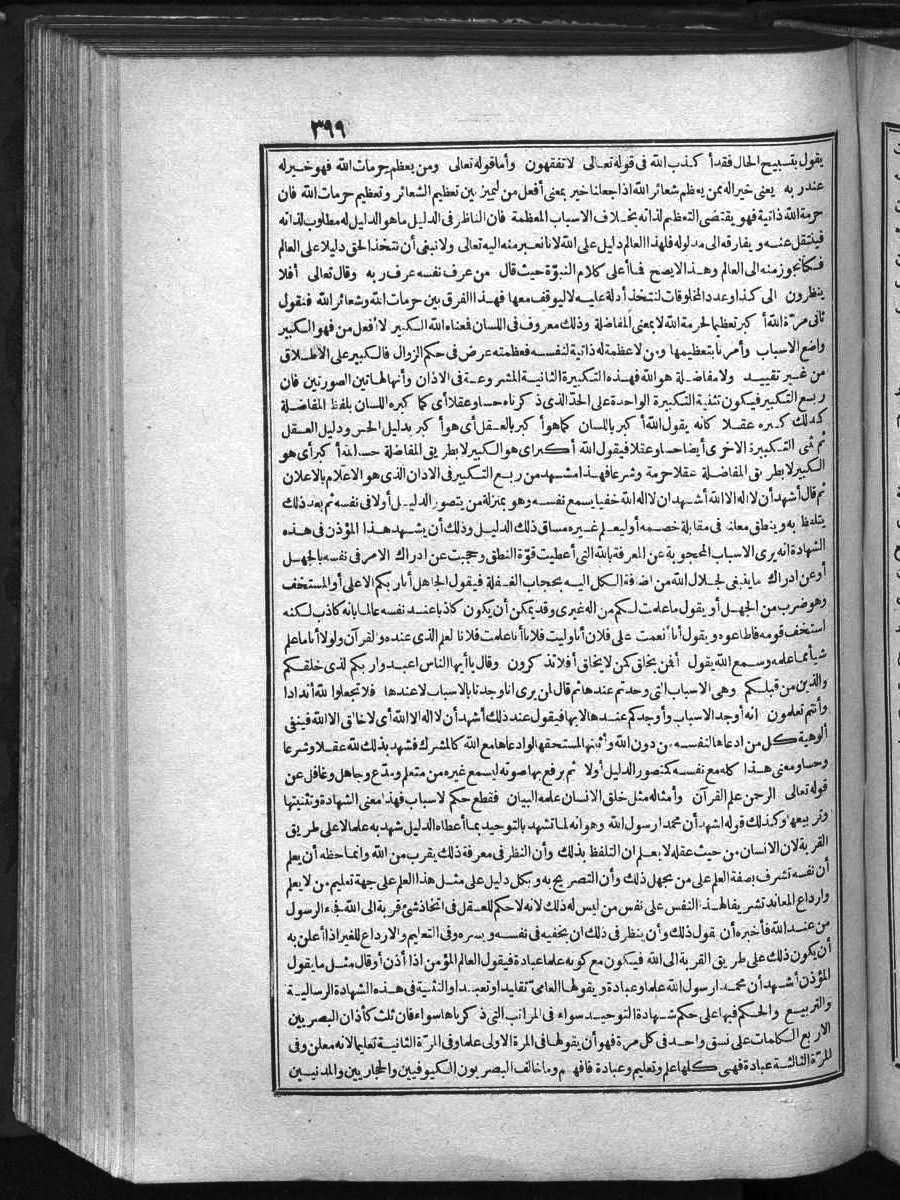 ٣٩٩
يقول بتسبيح الحال فقد أ كذب الله فى قوله تعالى لا تفقهون وأما قوله تعالى ومن يعظم حرمات الله فهو خير له
عند ربه يعنى خيرا له ممن يعظم شعائر الله اذا جعلنا خير بمعنى أفعل من لنميز بين تعظيم الشعائر وتعظيم حرمات الله فان
حرمة الله ذاتية فهو يقتضى التعظيم لذاته بخلاف الاسباب المعظمة فان الناظر فى الدليل ما هو الدليل له مطلوب لذاته
فينتقل عنه ويفارقه الى مدلوله فلهذا العالم دليل على الله لانا نعبر منه اليه تعالى ولا ينبغى أن نتخذ الحق دليلا على العالم
فكنا نجوز منه الى العالم وهذا لا يصح فما أعلى كلام النبوّة حيث قال من عرف نفسه عرف ربه وقال تعالى أفلا
ينظرون الى كذا وعدد المخلوقات لنتخذ أدلة عليه لا ليوقف معها فهذا الفرق بين حرمات الله وشعائر الله فنقول
ثانى مرّة الله أ كبر تعظيما لحرمة الله لا بمعنى المفاضلة وذلك معروف فى اللسان فمعناه الله الكبير لا أفعل من فهو الكبير
واضع الاسباب وأمرنا بتعظيمها ومن لا عظمة له ذاتية لنفسه فعظمته عرض فى حكم الزوال فالكبير على الاطلاق
من غير تقييد ولا مفاضلة هو الله فهذه التكبيرة الثانية المشروعة فى الاذان وأنها لهاتين الصورتين فان
ربع التكبير فيكون تثنية التكبيرة الواحدة على الحدّ الذى ذ كرناه حسا وعقلا أى كما كبره اللسان بلفظ المفاضلة
كذلك كبره عقلا كأنه يقول الله أ كبر باللسان كما هو أ كبر بالعقل أى هو أ كبر بدليل الحس ودليل العقل
ثم ثنى التكبيرة الاخرى أيضا حسا وعقلا فيقول الله أكبر أى هو الكبير لا بطريق المفاضلة حسا الله أ كبر أى هو
الكبير لا بطريق المفاضلة عقلا حرمة وشرعا فهذا مشهد من ربع التكبير فى الاذان الذى هو الاعلام بالاعلان
ثم قال أشهد أن لا اله الا الله أشهد ان لا اله الا الله خفيا يسمع نفسه وهو بمنزلة من يتصور الدليل أولا فى نفسه ثم بعد ذلك
يتلفظ به وينطق معلنا فى مقابلة خصمه أو ليعلم غيره مساق ذلك الدليل وذلك أن يشهد هذا المؤذن فى هذه
الشهادة انه يرى الاسباب المحجوبة عن المعرفة بالله التى أعطيت قوّة النطق وحجبت عن ادراك الامر فى نفسه بالجهل
أو عن ادراك ما ينبغى لجلال الله من اضافة الكل اليه بحجاب الغفلة فيقول الجاهل أنا ربكم الاعلى أو المستخف
وهو ضرب من الجهل أو يقول ما علمت لكم من اله غيرى وقد يمكن أن يكون كاذبا عند نفسه عالما بانه كاذب لكنه
استخف قومه فاطاعوه ويقول أنا أنعمت على فلان أنا وليت فلانا أنا علمت فلانا لعلم الذى عنده والقرآن ولولا أنا ما علم
شيأ مما علمه وسمع الله يقول أفمن يخلق كمن لا يخلق أفلا تذ كرون وقال يا أيها الناس اعبدوا ربكم الذى خلقكم
والذين من قبلكم وهى الاسباب التى وجدتم عندها ثم قال لمن يرى انا وجدنا بالاسباب لا عندها فلا تجعلوا لله أندادا
وأنتم تعلمون انه أوجد الاسباب وأوجدكم عندها لا بها فيقول عند ذلك أشهد أن لا اله الا الله أى لا خالق الا الله فينفى
ألوهية كل من ادعاها لنفسه من دون الله وأثبتها لمستحقها لو ادعاها مع الله كالمشرك فشهد بذلك لله عقلا وشرعا
وحسا ومعنى هذا كله مع نفسه كمتصور الدليل أولا ثم يرفع بها صوته ليسمع غيره من متعلم ومدّع وجاهل وغافل عن
قوله تعالى الرحمن علم القرآن وأمثاله مثل خلق الانسان علمه البيان فقطع حكم لاسباب فهذا معنى الشهادة وتثنيتها
وتربيعها وكذلك قوله أشهد أن محمدا رسول الله وهو انه لما تشهد بالتوحيد بما أعطاه الدليل شهد به علما لا على طريق
القربة لان الانسان من حيث عقله لا يعلم ان التلفظ بذلك وأن النظر فى معرفة ذلك يقرب من الله وانما حظه أن يعلم
أن نفسه تشرف بصفة العلم على من يجهل ذلك وأن التصريح به وبكل دليل على مثل هذا العلم على جهة تعليم من لا يعلم
وارداع المعاند تشريفا لهذا النفس على نفس من ليس له ذلك لانه لا حكم للعقل فى اتخاذ شئ قربة الى الله فجاء الرسول
من عند الله فأخبره أن يقول ذلك وأن ينظر فى ذلك ان يخفيه فى نفسه ويسره وفى التعليم والارداع للغير اذا أعلن به
أن يكون ذلك على طريق القربة الى الله فيكون مع كونه علما عبادة فيقول العالم المؤمن اذا أذن أو قال مثل ما يقول
المؤذن أشهد أن محمدا رسول الله علما وعبادة ويقولها العامىّ تقليدا وتعبدا والتثنية فى هذه الشهادة الرسالية
والتربيع والحكم فيها على حكم شهادة التوحيد سواء فى المراتب التى ذ كرناها سواء فان ثلث كأذان البصريين
الاربع الكلمات على نسق واحد فى كل مرة فهو أن يقولها فى المرة الاولى علما وفى المرّة الثانية تعليما لانه معلن وفى
المرّة الثالثة عبادة فهى كلها علم وتعليم وعبادة فافهم وما خالف البصريون الكوفيين والحجازيين والمدنيين